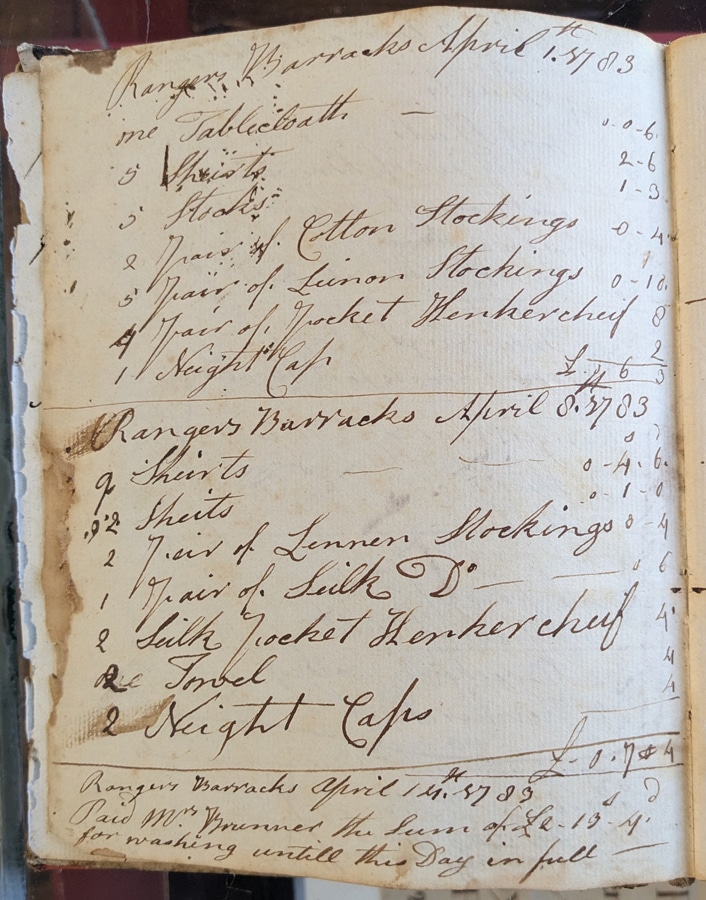 Rangers Barracks April 1.th 1783
one Tablecloath — 0-0-6.
5 Shirts 2-6
5 Stocks 1-3
2 pair of Cotton Stockings 0-4
5 pair of Leinon Stockings 0-10.
4 pair of pocket Henkercheif 8
1 Neight Cap 2
£ 6 3
Rangers Barracks April 8.th 1783
9 Sheirts — — 0-4-6.
2 Sheits 0-1-0
2 peir of Lennen Stockings 0-4
1 pair of Seilk Do — — 6
2 Seilk pocket Henkercheif 4
Towel 4
2 Neight Caps 4
£-0.7 4
Rangers Barracks April 14.th 1783 s d
Paid Mrs Brunner the Sum of £2-13-4.
for washing untill this Day in full —